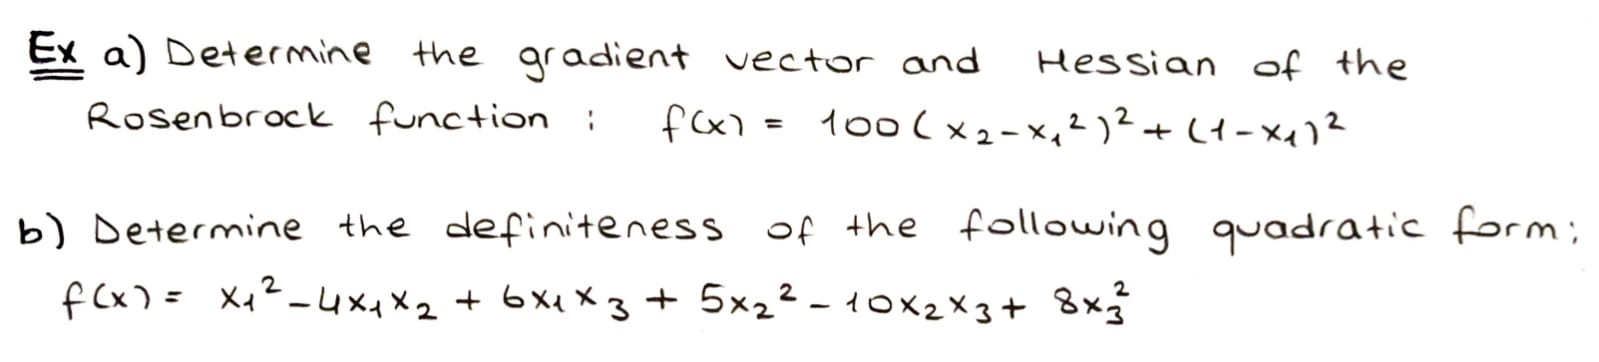 Ex a) Determine the gradient vector and Hessian of the
Rosenbrock function : f(x) = 100(x₂-x₁²)²+(1-x₁)²
b) Determine the definiteness of the following quadratic form;
f(x) = x₁²-4x₁x₂ + 6x₁x₃ + 5x₂² - 10x₂x₃ + 8x₃²